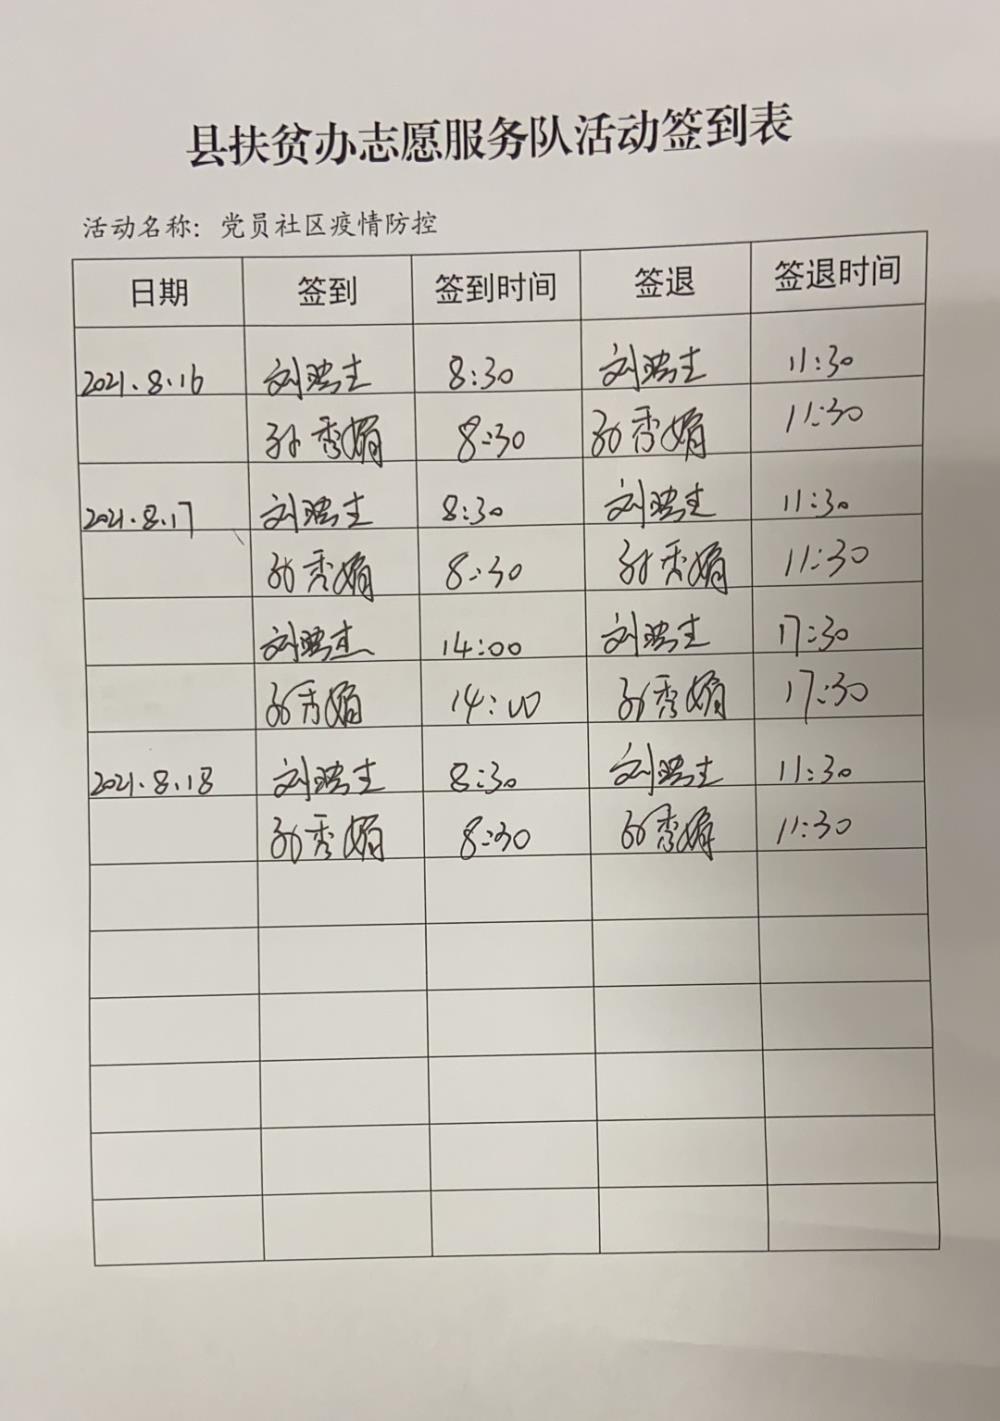 县扶贫办志愿服务队活动签到表
活动名称：党员社区疫情防控
日期 签到 签到时间 签退 签退时间
2021.8.16 刘 8:30 刘 11:30
孙秀娟 8:30 孙秀娟 11:30
2021.8.17 刘 8:30 刘 11:30
孙秀娟 8:30 孙秀娟 11:30
刘 14:00 刘 17:30
孙秀娟 14:00 孙秀娟 17:30
2021.8.18 刘 8:30 刘 11:30
孙秀娟 8:30 孙秀娟 11:30